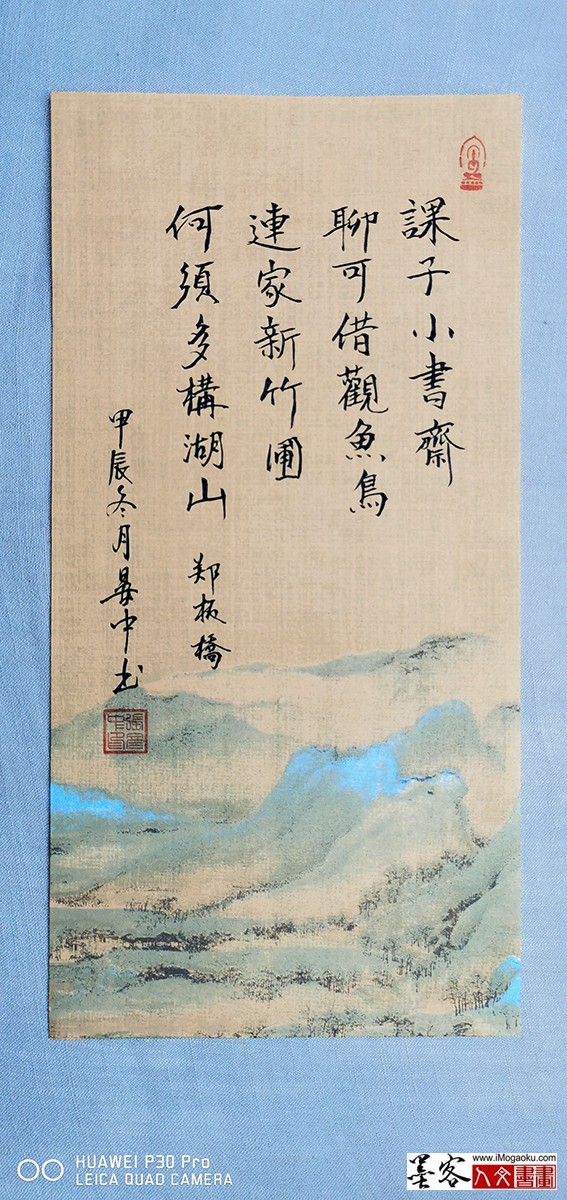 課子小書齋
聊可借觀魚鳥
連家新竹圃
何須多構湖山
郑板橋
甲辰冬月晏中书
HUAWEI P30 Pro
LEICA QUAD CAMERA
www.iMogaoku.com
墨客人文書畫